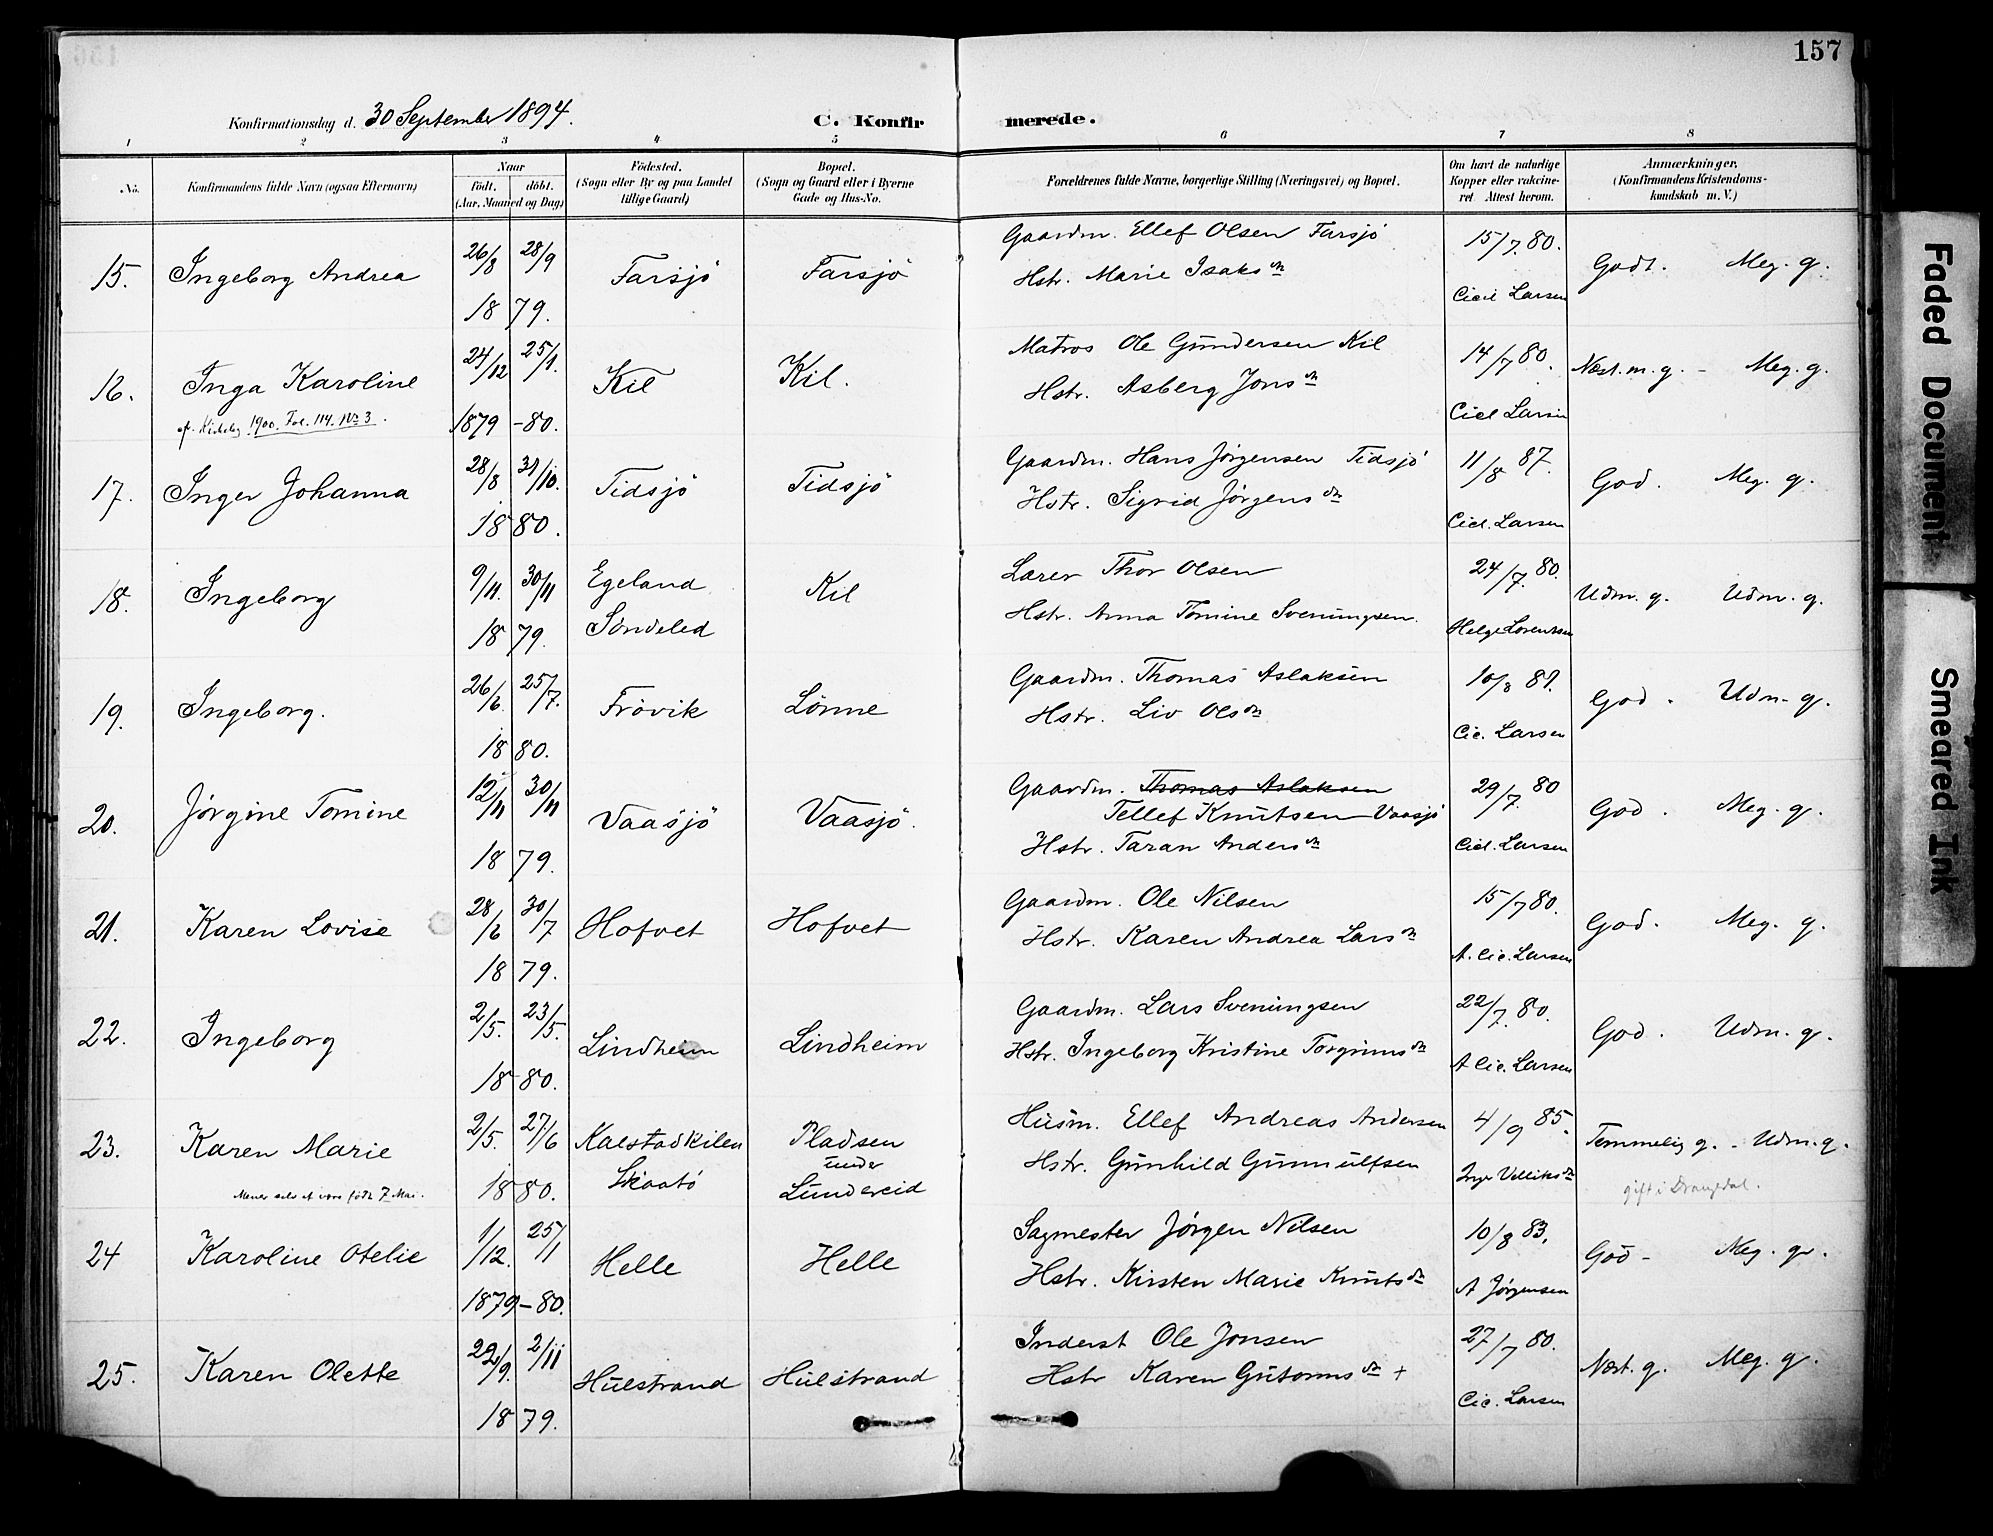 157
Konfirmationsdag d. 30 September 1894.
C. Konfir merede.
1 2 3 4 5 6 7 8
No. Konfirmandens fulde Navn (ogsaa Efternavn) Naar født. døbt. (Aar, Maaned og Dag) Fødested. (Sogn eller By og paa Landet tillige Gaard) Bopæl. (Sogn og Gaard eller i Byerne Gade og Hus-No. Forældrenes fulde Navne, borgerlige Stilling (Næringsvei) og Bopæl. Om havt de naturlige Kopper eller vakcineret Attest herom. Anmærkninger. (Konfirmandens Kristendomskundskab m. V.)
15. Ingeborg Andrea 26/8 28/9 Farsjö Farsjö Gaardm. Ellef Olsen Farsjö 15/7. 80. Godt. Meg. g.
1879. Hstr. Marie Isaksdn Cicil Larsen
16. Inga Karoline 24/12 25/1. Kil Kil. Matros Ole Gundersen Kil 14/7 80. Næst. m. g. - Meg. g.
1900. Fol. 114. No 3. 1879 -80. Hstr. Asberg Jonsdn Cicl Larsen
17. Inger Johanna 28/8 31/10. Tidsjö Tidsjö Gaardm. Hans Jørgensen Tidsjö 11/8 87. God. Meg. g.
1880. Hstr. Sigrid Jørgensdn Cicl. Larsen
18. Ingeborg 9/11. 30/11 Egeland Söndeled Kil Lærer Thor Olsen 24/7. 80. Udm. g. Udm. g.
1879. Hstr. Anna Tomine Sveningsen. Helge Lorentsen
19. Ingeborg. 26/6. 25/7. Frövik Lönne Gaardm. Thomas Aslaksen 10/8 81. God. Udm. g.
1880. Hstr. Liv Olsdn Cic. Larsen
20. Jørgine Tomine 12/11 30/11 Vaasjö Vaasjö. Gaardm. Thomas Aslaksen 29/7. 80 God. Meg. g.
Tellef Knutsen Vaasjö
1879. Hstr. Taran Andersdn Cicl. Larsen
21. Karen Lovise 28/6 30/7 Hofvet Hofvet Gaardm. Ole Nilsen 15/7 80. God. Meg. g.
1879. Hstr. Karen Andrea Larsdn A. Cic. Larsen
22. Ingeborg 2/5. 23/5. Lindheim Lindheim Gaardm. Lars Sveningsen 22/7. 80. God. Udm. g.
1880. Hstr. Ingeborg Kristine Torgrimsdn A Cic. Larsen
23. Karen Marie 2/5. 27/6 Kalstadkilen Skaatö Pladsen under Lundereid Husm. Ellef Andreas Andersen 4/9 85. Temmelig g. - Udm. g.
Mener selv at være født 7 Mai. 1880. Hstr. Gunhild Gunnulfsen gift i Drangedal.
24 Karoline Otelie 1/12. 25/1 Helle Helle Sagmester Jørgen Nilsen 10/8 83. God - Meg. g.
1879 - 80. Hstr. Kirsten Marie Knutsdn A Jørgensen
25. Karen Olette 22/9. 2/11 Hulstrand Hulstrand Inderst Ole Jonsen 27/7 80. Næst. g. Meg. g.
1879. Hstr Karen Gutormsdn + Cic. Larsen
Faded Document
Smeared Ink